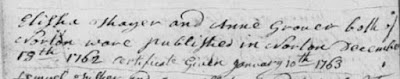 Elisha Thayer and Anne Grover both of
Norton ware published in Norton December
13th 1762 Certificate Given January 10th 1763